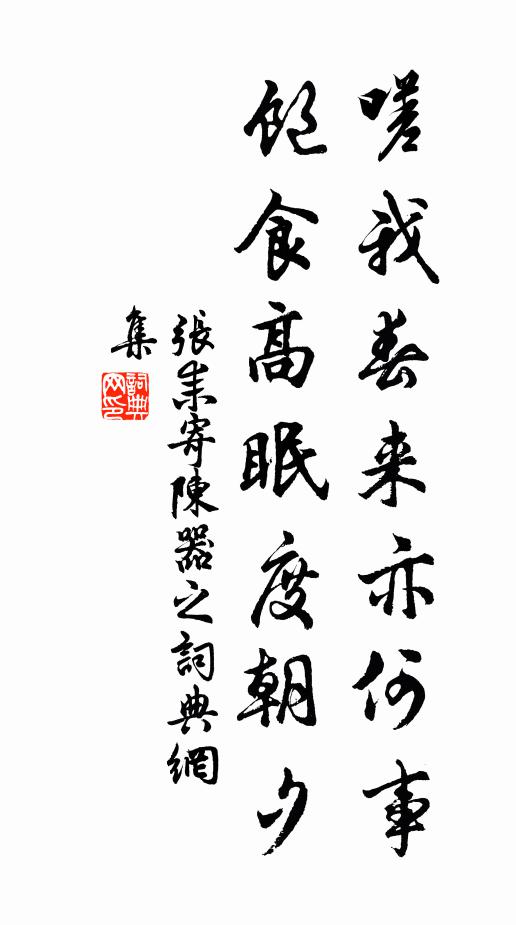 嗟我春来亦何事
飽食高眠度朝夕
張耒寄陳器之詞典網
集
詞典
网印